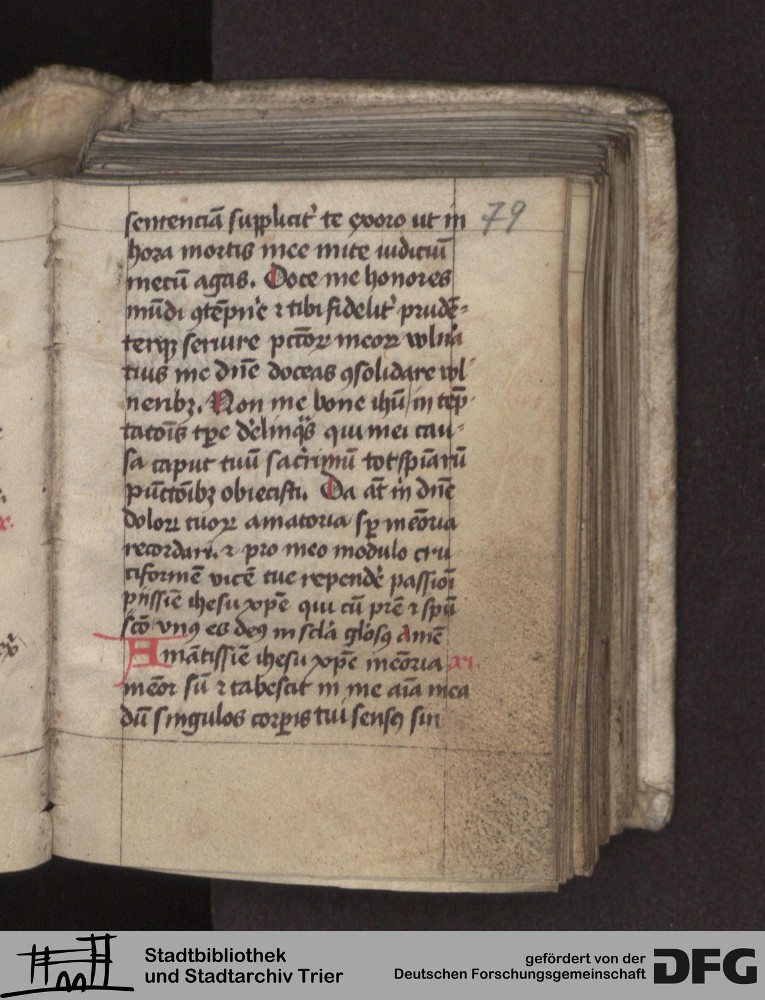 sentenciā supplicit᷑ te exoro ut in 79
hora mortis mee mite iudiciū
mecū agas. Doce me honores
mūdi ꝯtēpn̄e ⁊ tibi fidelit᷑ prudē-
terqꝫ seruire pctōꝝ meoꝝ vulna
tius me dn̄e doceas ꝯsolidare vul
neribꝫ. Non me bone ihū in tēp-
tatōis tꝑe
qui mei cau-
sa caput tuū sacrimū tot spīarū
pūctōibꝫ obiecisti. Da āt in dn̄e
doloꝝ tuoꝝ amatoria sꝑ mēoria
recordari. ⁊ pro meo modulo cru
ciformē vicē tue rependē passioī
pijssīe ihesu xp̄e qui cū pr̄e ⁊ spū
scō vnꝯ es deꝯ in sclā glōsꝯ Amē
Amātissīe ihesu xp̄e mēoria xi.
mēor sū ⁊ tabescit in me aīa mea
dū singulos corꝑis tui sensꝯ sin
Stadtbibliothek
und Stadtarchiv Trier
gefördert von der
Deutschen Forschungsgemeinschaft
DFG